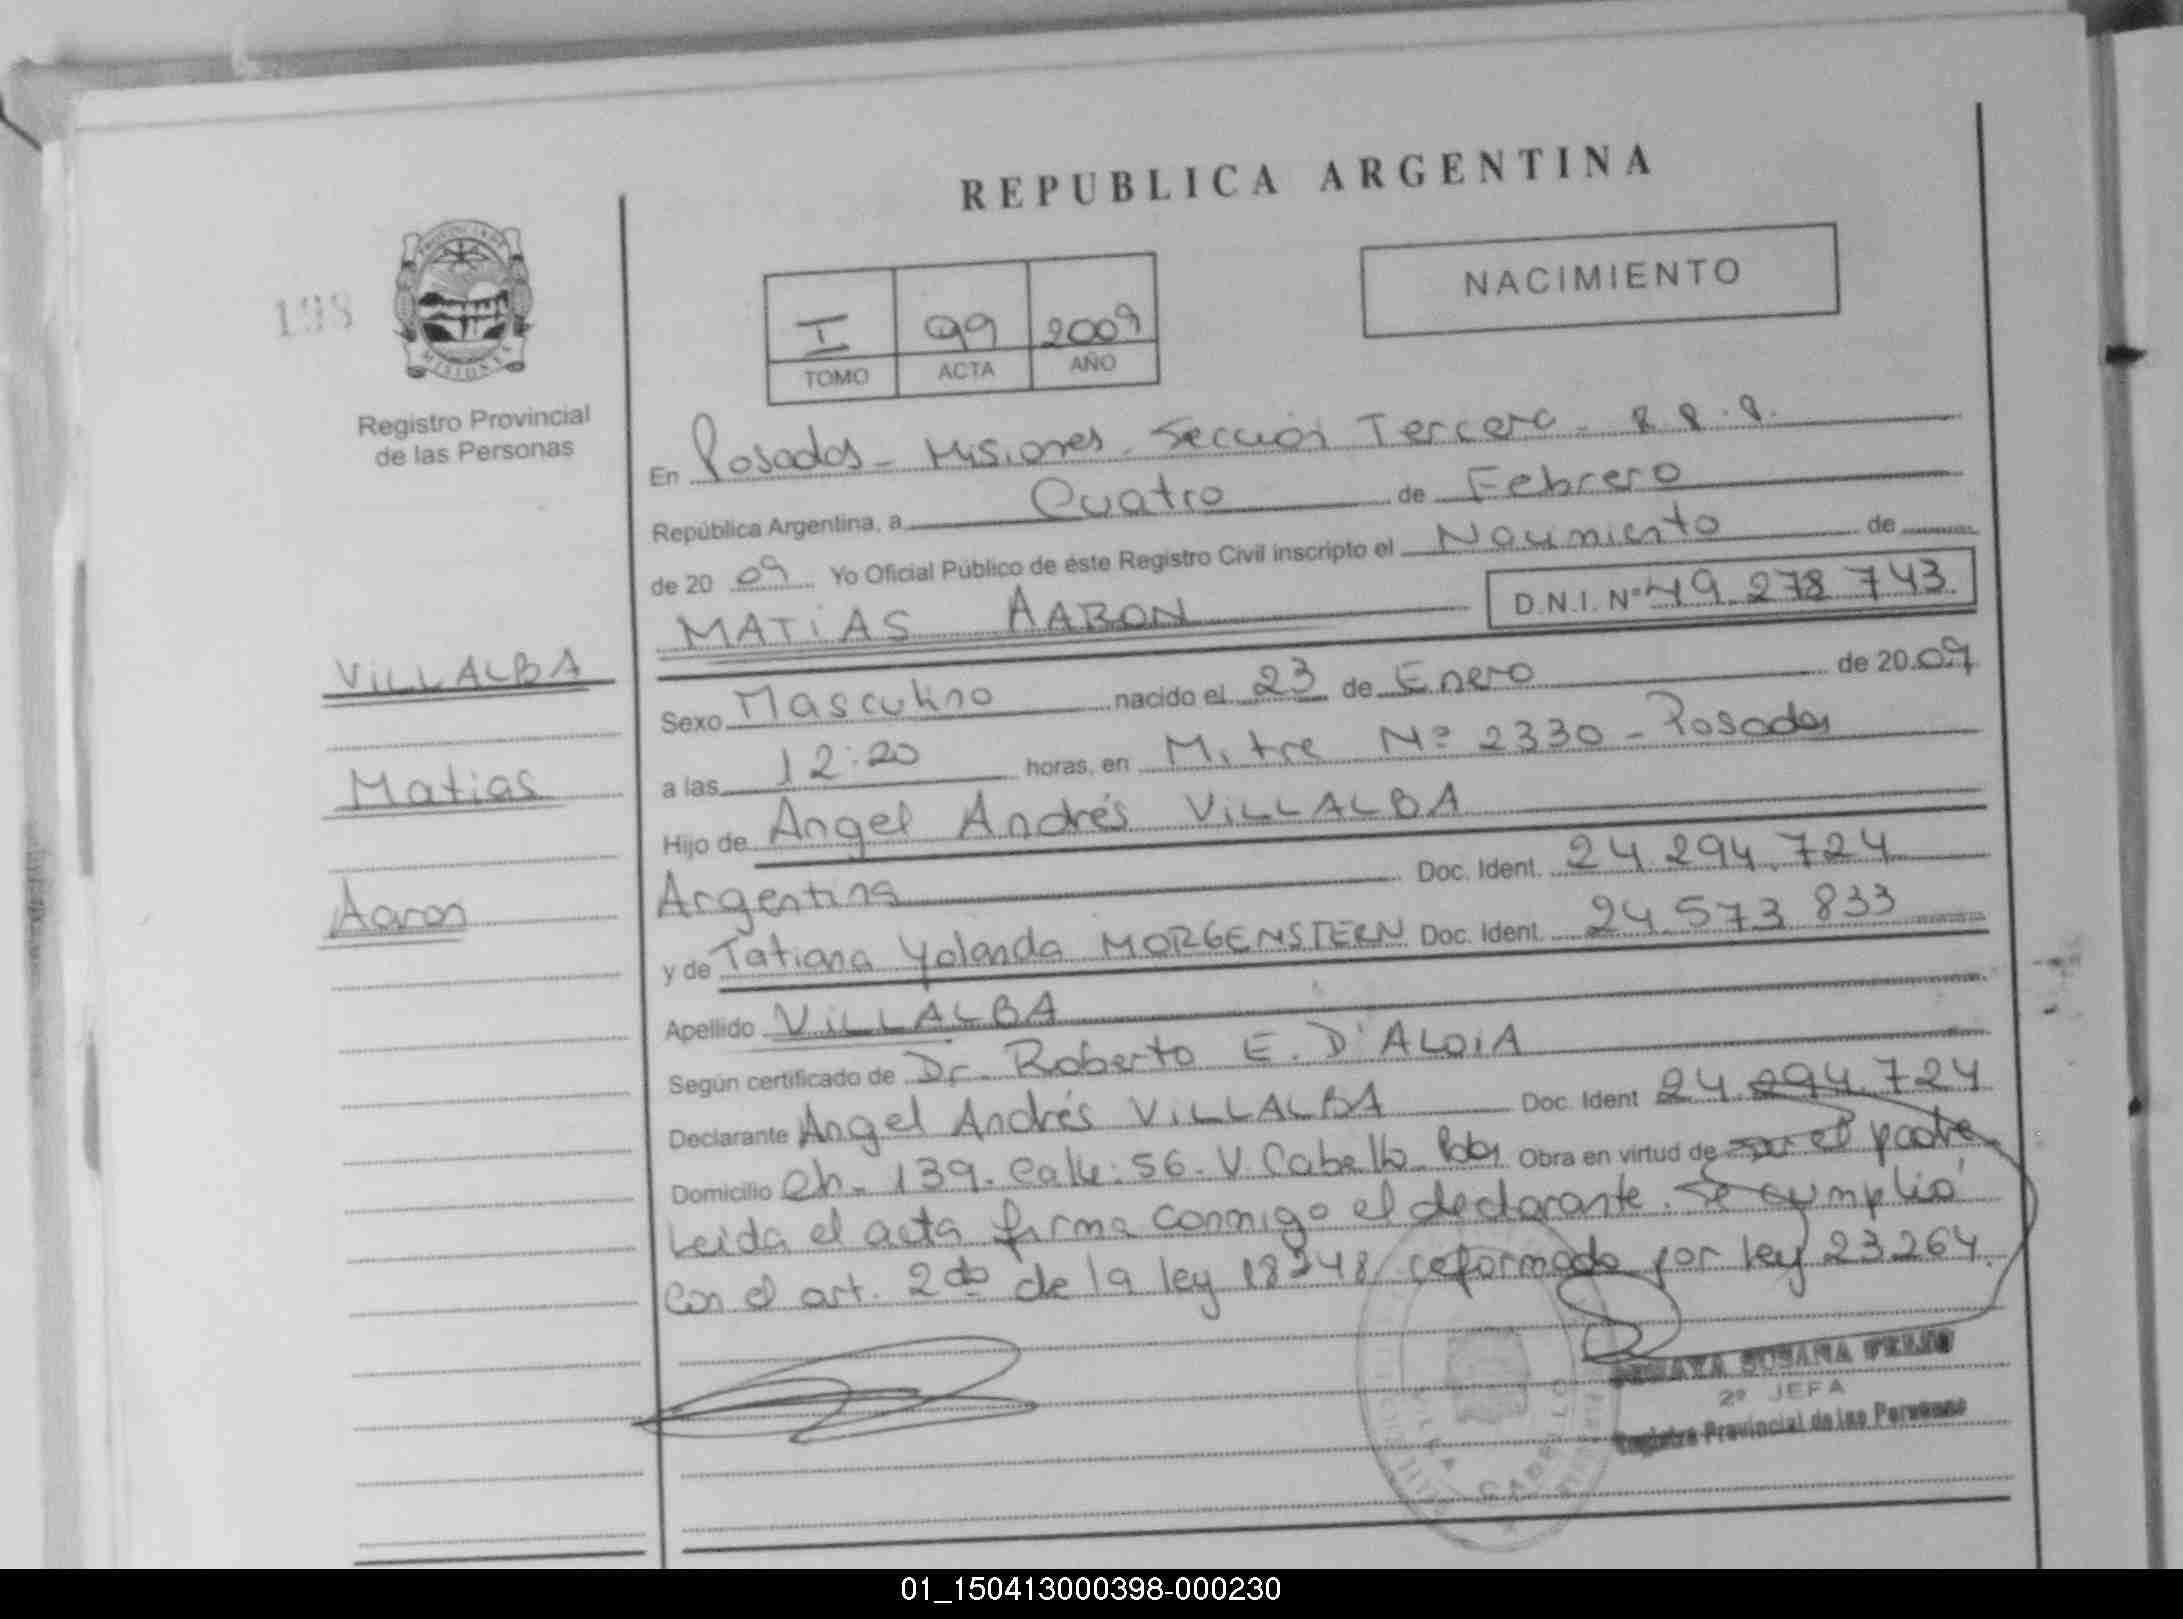 REPUBLICA ARGENTINA
198
PROVINCIA DE
MISIONES
Registro Provincial
de las Personas
I 99 2009
TOMO ACTA AÑO
NACIMIENTO
En Posadas - Misiones - Sección Tercera -
República Argentina, a Cuatro de Febrero
de 20 09 Yo Oficial Público de éste Registro Civil inscripto el Nacimiento de
MATIAS AARON D.N.I. Nº 49.278.743
VILLALBA
Matias
Aaron
Sexo Masculino nacido el 23 de Enero de 20 09
a las 12:20 horas, en Mitre Nº 2330 - Posadas
Hijo de Angel Andrés VILLALBA
Argentina Doc. Ident. 24.294.724
y de Tatiana Yolanda MORGENSTERN Doc. Ident. 24.573.833
Apellido VILLALBA
Según certificado de Dr. Roberto E. D'ALOIA
Declarante Angel Andrés VILLALBA Doc. Ident 24.294.724
Domicilio Ch. 139. Calle: 56. V. Cabello Obra en virtud de ser el padre
Leida el acta firma conmigo el declarante. Se cumplió
con el art. 2do de la ley 18248 reformado por ley 23264.
SUSANA
2º JEFA
Registro Provincial de las Personas
VILLA CABELLO
01_150413000398-000230